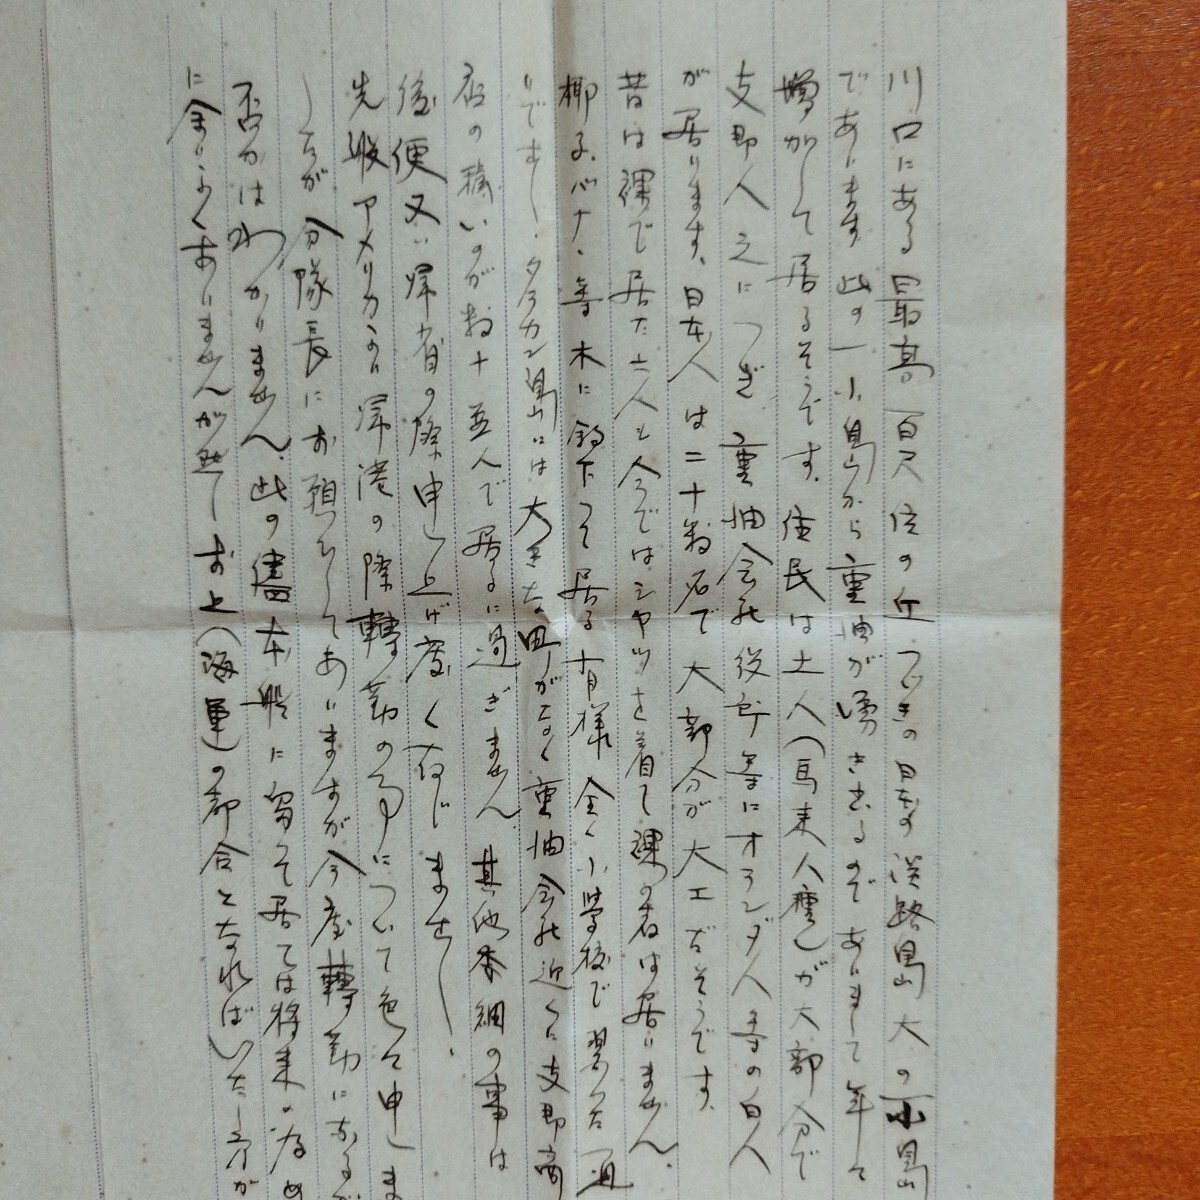 川口にある最高一百尺位の丘つゞきの日本の淡路島大の小島
であります 此の一小島から重油が湧き出るのでありまして年々
増加して居るそうです。住民は土人(馬来人種)が大部分で
支那人之につぎ重油会社役所等にオランダ人等の白人
が居ります。日本人は二十数名で大部分が大工ださうです。
昔は裸で居た土人も今ではシヤツを着て裸の者は居りません。
椰子、バナナ、等木に釣下つて居る有様全く小学校で習つた通
りですし、タラカン島には大きな町がなく重油会社近くに支那商
店の稀いのが数十五人で居るに過ぎません 其他委細の事は
後便又は帰省の際申し上げ度く存じませし。
先般アメリカより帰港の際轉勤の事について色々申しま
したが分隊長にお頼みしてありますが今度轉勤になるか
否かはわかりません。此の儘本船に留つて居ては将来の為め
に余りよくありませんが然しお上(海軍)の都合となればいたし方が